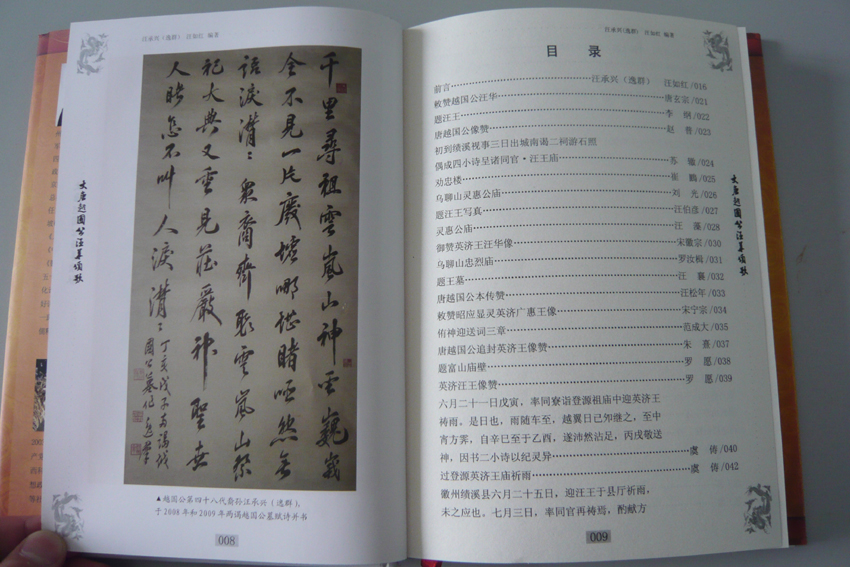 汪承兴（逸群） 汪如红 编著
大唐越國公汪華頌歌
千里尋祖雲嵐山神宇巍峩
今不見一片廢墟哪堪睹啞然無
語淚潸潸衆裔齊聚雲嵐山祭
祀大典又重見莊嚴神聖
人時怎不叫人淚潸潸
丁亥戊子兩謁越
國公墓作
▲越国公第四十八代裔孙汪承兴（逸群），
于2008年和2009年两谒越国公墓赋诗并书
008
汪承兴（逸群） 汪如红 编著
目 录
前言……汪承兴（逸群） 汪如红/016
敕赞越国公汪华……唐玄宗/021
题汪王……李 纲/022
唐越国公像赞……赵 普/023
初到绩溪视事三日出城南谒二祠游石照
偶成四小诗呈诸同官·汪王庙……苏 辙/024
劝忠楼……崔 鶠/025
乌聊山灵惠公庙……刘 光/026
题汪王写真……汪伯彦/027
灵惠公庙……汪 藻/028
御赞英济王汪华像……宋徽宗/030
乌聊山忠烈庙……罗汝楫/031
题王墓……汪 襄/032
唐越国公本传赞……汪松年/033
敕赞昭应显灵英济广惠王像……宋宁宗/034
侑神迎送词三章……范成大/035
唐越国公追封英济王像赞……朱 熹/037
题富山庙壁……罗 愿/038
英济汪王像赞……罗 愿/039
六月二十一日戊寅，率同寮诣登源祖庙中迎英济王
祷雨，是日也，雨随车至，越翼日己卯继之，至中
宵方霁，自辛巳至于乙酉，遂沛然沾足，丙戌敬送
神，因书二小诗以纪灵异……虞 俦/040
过登源英济王庙祈雨……虞 俦/042
徽州绩溪县六月二十五日，迎汪王于县厅祈雨，
未之应也。七月三日，率同官再祷焉，酌献方
009
大唐越國公汪華頌歌